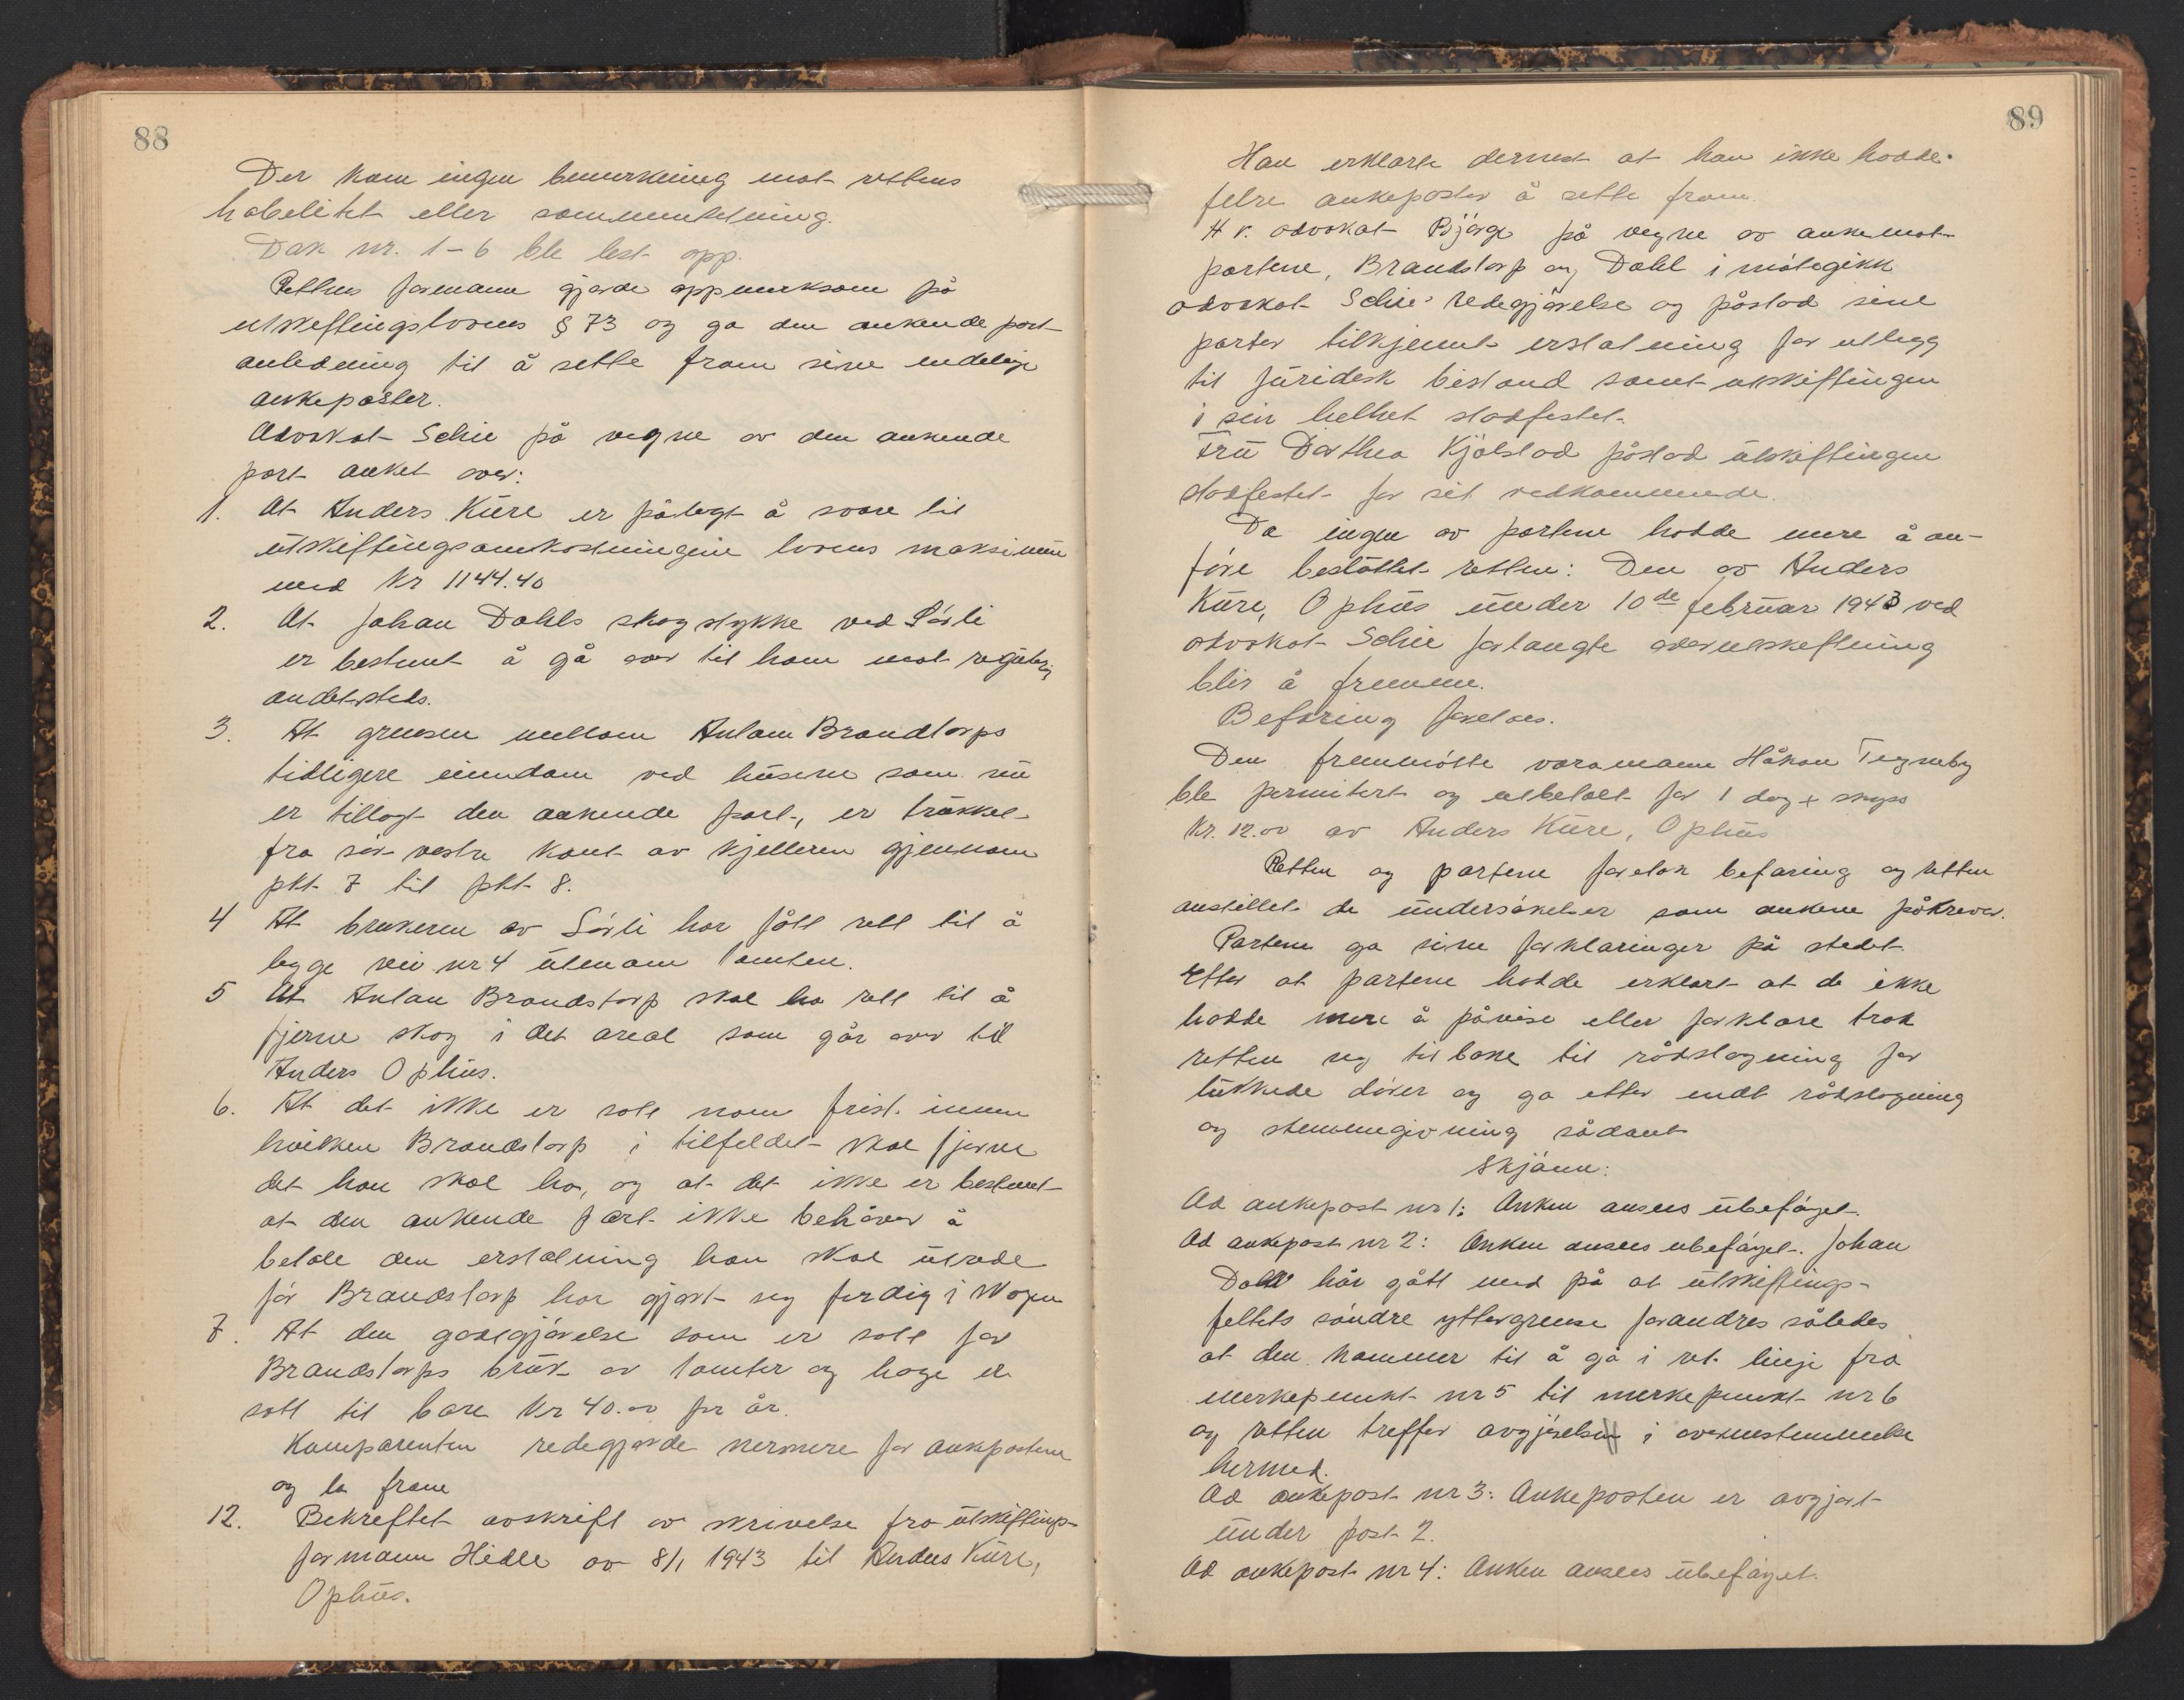 88
Der kom ingen bemerkning mot rettens
habelitet eller sammensetning.
Dok nr. 1-6 ble lest opp.
Rettens formann gjorde oppmerksom på
utskiftingslovens § 73 og ga den ankende part
anledning til å sette fram sine endelige
ankeposter.
Advokat Schie på vegne av den ankende
part anket over:
1. At Anders Kure er pålagt å svare til
utskiftingsomkostningene lovens maksimum
med kr 1144.40
2. At Johan Dahls skogstykke ved Sørli
er bestemt å gå over til ham mot regulering
andetsteds.
3. At grensen mellom Anton Brandtorps
tidligere eiendom ved husene som nu
er tillagt den ankende part, er trukket
fra sør-vestre kant av kjelleren gjennom
pkt. 7 til pkt. 8.
4 At brukeren av Sørli har fått rett til å
legge vei nr 4 utenom tomten.
5 At Anton Brandstorp skal ha rett til å
fjerne skog i det areal som går over til
Anders Ophus.
6. At det ikke er satt noen frist innen
hvilken Brandstorp i tilfeldet skal fjerne
det han skal ha, og at det ikke er bestemt
at den ankende part ikke behøver å
betale den erstatning han skal utrede
før Brandstorp har gjort seg ferdig i skogen
7. At den godtgjørelse som er satt for
Brandstorps bruk av tomter og hage er
satt til bare kr 40.00 pr år.
Komparenten redegjorde nermere for ankepostene
og la fram
12. Bekreftet avskrift av skrivelse fra utskiftings-
formann Hidle av 8/1 1943 til Anders Kure,
Ophus.
89
Han erklærte dernest at han ikke hadde
flere ankeposter å sette fram.
H r. advokat Bjørge på vegne av ankemot-
partene, Brandstorp og Dahl i møtegikk
advokat Schie's redegjørelse og påstod sine
parter tilkjennt erstatning for utlegg
til juridisk bistand samt utskiftingen
i sin helhet stadfestet.
Fru Dorthea Kjølstad påstod utskiftingen
stadfestet for sit vedkommende.
Da ingen av partene hadde mere å an-
føre besluttet retten: Den av Anders
Kure, Ophus under 10de februar 1943 ved
advokat Schie forlangte overutskiftning
blir å fremme.
Befaring foretaes.
Den fremmøtte varamann Håkon Tegneby
ble permitert og utbetalt for 1 dag + skyss
Kr. 12.00 av Anders Kure, Ophus
Retten og partene foretok befaring og retten
anstillet de undersøkelser som ankene påkrever.
Partene ga sine forklaringer på stedet.
Etter at partene hadde erklært at de ikke
hadde mere å påvise eller forklare trak
retten seg tilbake til rådslagning for
lukkede dører og ga etter endt rådslagning
og stemmegivning sådant
skjønn:
Ad ankepost nr 1: Anken ansees ubeføyet.
Ad ankepost nr 2: Anken ansees ubeføyet. Johan
Dahl har gått med på at utskiftings-
feltets søndre yttergrense forandres således
at den kommer til å gå i ret linje fra
merkepunkt nr 5 til merkepunkt nr 6
og retten treffer avgjørelsen i overenstemmelse
hermed.
Ad ankepost nr 3: Ankeposten er avgjort
under post 2.
Ad ankepost nr 4: Anken ansees ubeføyet.